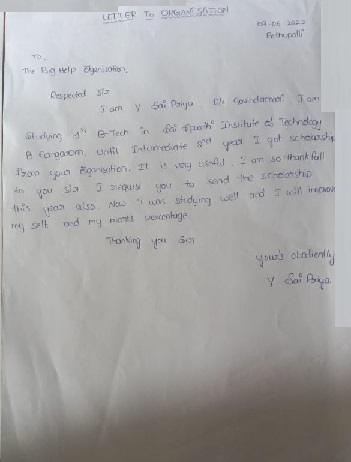 LETTER TO ORGANISATION
09-06-2022
Pethupalli
To,
The Big Help Organisation,
Respected Sir
I am Y Sai Priya, D/o I am
Studying 1st B-Tech in Sai Spurthi Institute of Technology
B Gangaram, until Intermediate 2nd year I got scholarship
from your Organisation. It is very useful. I am so thankfull
to you sir I request you to send the scholarship
this year also. Now I was studying well and I will improve
my self and my marks percentage.
Thanking you Sir
your's obediently
Y Sai Priya